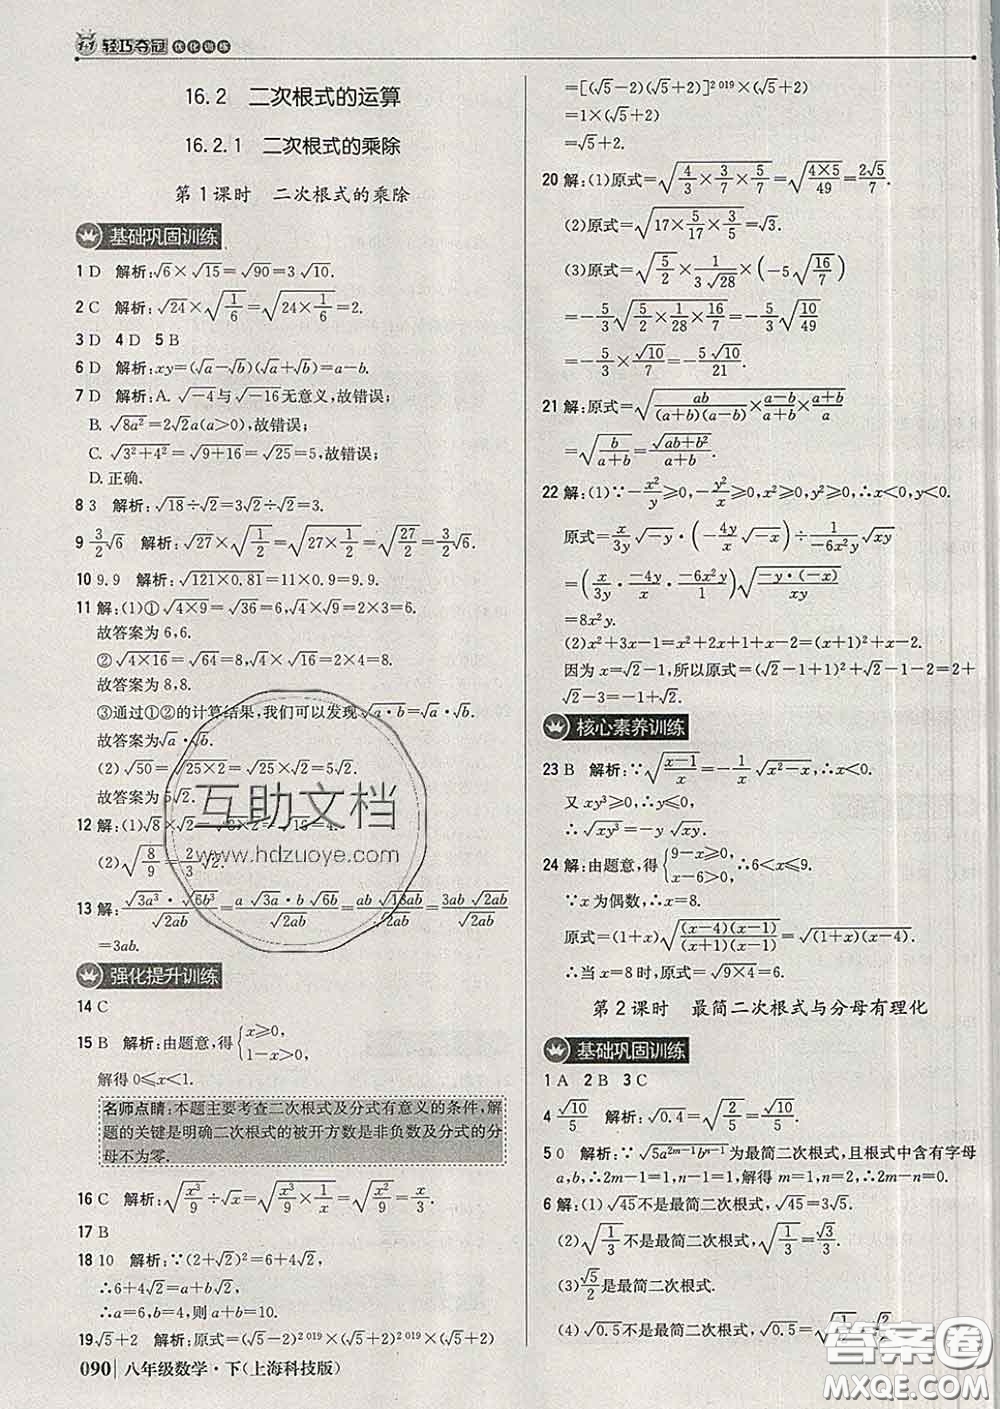 1+1 轻巧夺冠 优化训练
16.2 二次根式的运算
16.2.1 二次根式的乘除
第1课时 二次根式的乘除
基础巩固训练
1 D 解析:√6×√15=√90=3√10.
2 C 解析:√24×√(1/6)=√(24×1/6)=2.
3 D 4 D 5 B
6 D 解析:xy=(√a-√b)(√a+√b)=a-b.
7 D 解析:A. √-4与√-16无意义,故错误;
B. √(8a²)=2√2a(a>0),故错误;
C. √(3²+4²)=√(9+16)=√25=5,故错误;
D. 正确.
8 3 解析:√18÷√2=3√2÷√2=3.
9 3/2√6 解析:√27×√(1/2)=√(27×1/2)=√(27/2)=3/2√6.
10 9.9 解析:√(121×0.81)=11×0.9=9.9.
11 解:(1)①√(4×9)=√36=6,√4×√9=2×3=6.
故答案为6,6.
②√(4×16)=√64=8,√4×√16=2×4=8.
故答案为8,8.
③通过①②的计算结果,我们可以发现√(a·b)=√a·√b.
故答案为√a·√b.
(2)√50=√(25×2)=√25×√2=5√2.
故答案为5√2.
12 解:(1)√8×√2=√(8×2)=√16=4.
(2)√(8/9)=2/3√2.
13 解:(√(3a³)·√(6b³))/√(2ab)=(a√(3a)·b√(6b))/√(2ab)=(ab√(18ab))/√(2ab)=(3ab√(2ab))/√(2ab)
=3ab.
强化提升训练
14 C
15 B 解析:由题意,得{x≥0, 1-x>0,
解得0≤x<1.
名师点睛:本题主要考查二次根式及分式有意义的条件,解
题的关键是明确二次根式的被开方数是非负数及分式的分
母不为零.
16 C 解析:√(x³/9)÷√x=√(x³/9·1/x)=√(x²/9)=x/3.
17 B
18 10 解析:∵(2+√2)²=6+4√2,
∴6+4√2=a+b√2,
∴a=6,b=4,则a+b=10.
19 √5+2 解析:原式=(√5-2)²⁰¹⁹×(√5+2)²⁰¹⁹×(√5+2)
090 八年级数学·下(上海科技版)
=[(√5-2)(√5+2)]²⁰¹⁹×(√5+2)
=1×(√5+2)
=√5+2.
20 解:(1)原式=√(4/3×3/7×5/7)=√((4×5)/49)=2√5/7.
(2)原式=√(17×5/17×3/5)=√3.
(3)原式=√(5/2)×1/(3√28)×(-5√(16/7))
=-5/3√(5/2×1/28×16/7)=-5/3√(10/49)
=-5/3×√10/7=-5√10/21.
21 解:原式=√(ab/((a+b)(a-b))×(a-b)/(a+b)×(a+b)/a)
=√(b/(a+b))=√(ab+b²)/(a+b).
22 解:(1)∵-x²/y≥0,-y²/x≥0,x²≥0,y²≥0,∴x<0,y<0.
原式=x/3y√-y·(-4y/x√-x)÷1/(-6x²y)√xy
=(x/3y·-4y/x·-6x²y/1)√(-y·(-x)/xy)
=8x²y.
(2)x²+3x-1=x²+2x+1+x-2=(x+1)²+x-2.
因为x=√2-1,所以原式=(√2-1+1)²+√2-1-2=2+
√2-3=√2-1.
核心素养训练
23 B 解析:∵√((x-1)/x)=-1/x√(x²-x),∴x<0.
又xy³≥0,∴y≤0,
∴√(xy³)=-y√(xy).
24 解:由题意,得{9-x≥0, x-6>0, ∴6<x≤9.
∵x为偶数,∴x=8.
原式=(1+x)√((x-4)(x-1)/((x+1)(x-1)))=√((1+x)(x-4)).
∴当x=8时,原式=√(9×4)=6.
第2课时 最简二次根式与分母有理化
基础巩固训练
1 A 2 B 3 C
4 √10/5 解析:√0.4=√(2/5)=√10/5.
5 0 解析:∵√(5a²ᵐ⁻¹bⁿ⁻¹)为最简二次根式,且根式中含有字母
a,b,∴2m-1=1,n-1=1,解得m=1,n=2,∴2m-n=0.
6 解:(1)√45不是最简二次根式,√45=3√5.
(2)√(1/3)不是最简二次根式,√(1/3)=√3/3.
(3)√5/2是最简二次根式.
(4)√0.5不是最简二次根式,√0.5=√(1/2)=√2/2.
互助文档
www.hdzuoye.com
答案圈
MXQE.COM